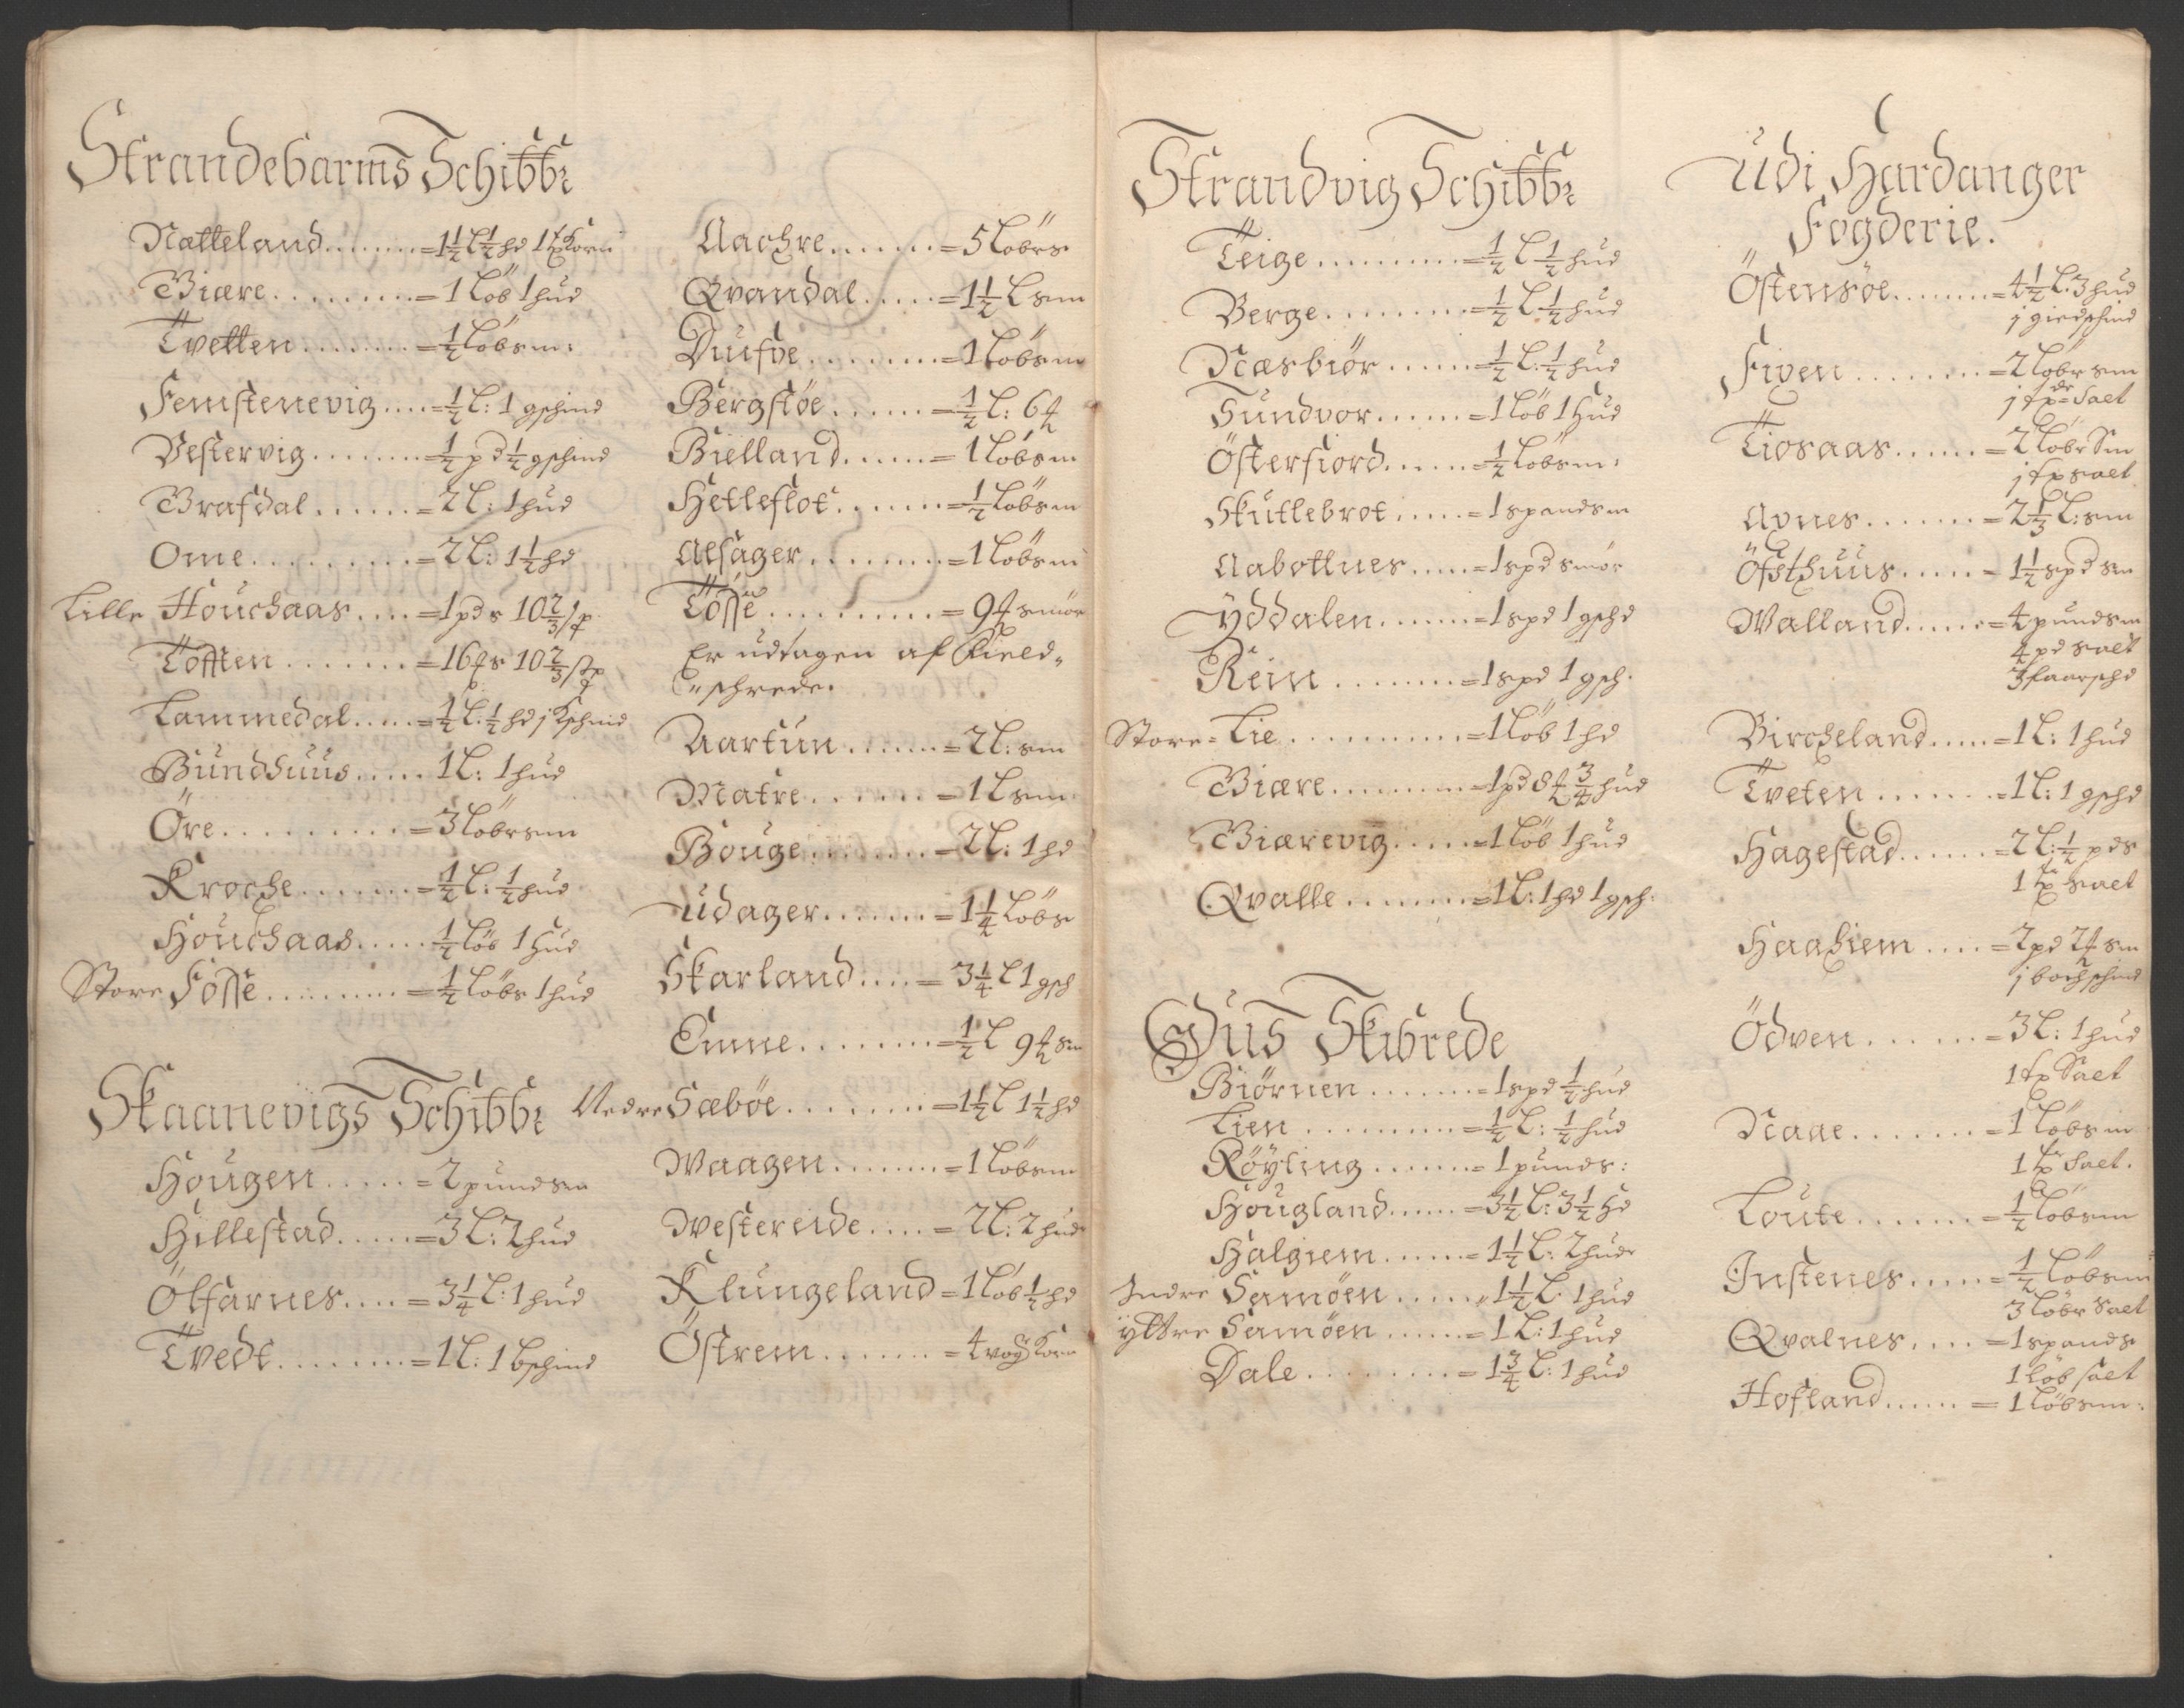 Strandebarms Schibbr
Natteland ........ = 1½ L ½ hd 1 tKorn
Biære ......... = 1 löb 1 hud
Tvetten ........ = ½ löbsm:
Femstenevig .... = ½ L: 1 gschind
Vestervig ........ = ½ pd ½ gschind
Brafdal ...... = 2 L: 1 hud
Ome .......... = 2 L: 1½ hd
Lille Houchaas .... = 1 pd s 10⅔
Tofften ....... = 16 s 10⅔
Lammedal ..... = ½ L. ½ hd j Kschind
Bundhuus ..... 1 L: 1 hud
Öre .......... = 3 löbrsm
Kroche ....... = ½ L: ½ hud
Houchaas ..... ½ löb 1 hud
Store Fosse ......... = ½ löbs 1 hud
Skaanevigs Schibbr
Hougen ..... = 2 pundsm
Hillestad ..... = 3 L: 2 hud
Ölfarnes .... = 3¼ L: 1 hud
Tvedt ........ = 1 L: 1 bschind
Aachre ....... = 5 löbrs
Qvandal ..... = 1½ L sm
Duusve ........ = 1 löbsm
Bergstöe ...... = ½ L: 6
Bielland ...... = 1 löbsm
Hetleflot ....... = ½ löbsm
Alsager ........ = 1 löbsm
Tösse .......... = 9 smör
Er udtagen af Kield„
„schrede.
Aartun ...... = 2 L: sm
Matre ....... = 1 L sm
Bouge ........ = 2 L: 1 hd
Udager ....... = 1¼ löbs
Skarland .... = 3¼ L 1 gsch
Emne ......... = ½ L 9 sm
Nedre Sæböe ......... = 1½ L 1½ hd
Waagen ........ = 1 löbsm
Westereide .... = 2 L: 2 hud
Klungeland = 1 löb ½ hd
Östrem ....... = 4 vog Korn
Strandvig Schibbr
Teige .......... = ½ L ½ hud
Berge ......... = ½ L. ½ hud
Næsbiör ...... = ½ L: ½ hud
Sundvor ...... = 1 löb 1 hud
Österfiord ...... = ½ löbsm:
Skutlebrot ..... = 1 spandsm
Aabotlnes ..... = 1 spd smör
Yddalen ....... = 1 spd 1 gschd
Rein ........ = 1 spd 1 gsch.
Store = Lie ............ = 1 löb 1 hd
Biære .......... = 1 pd 8 ¾ hud
Biærevig ..... = 1 löb 1 hud
Qvalle ........ = 1 L: 1 hd 1 gsch.
Guus Skibrede
Biörnen ....... = 1 spd ½ hud
Lien .......... = ½ L: ½ hud
Röyling ....... = 1 punds:
Hougland ...... = 3½ L: 3½ hd
Halgiem ...... = 1½ L: 2 hude
Indre Samöen ..... „ 1½ L. 1 hud
ÿttre Samöen ...... = 1 L: 1 hud
Dale ......... = 1¾ L: 1 hud
Udi Hardanger
Fogderie.
Östensöe ....... = 4½ L. 3 hud
j giedschind
Fiven ........ = 2 löbr sm
Salt
Tiosaas ...... = 2 löbr Sm
salt
Avnes ....... = 2⅓ L: sm
Östhuus ..... = 1½ spd sm
Walland ...... = 4 pundsm
4 pd salt
3 faarschd
Bircheland ..... = 1 L: 1 hud
Tveten ....... = 1 L: 1 gschd
Hagestad ...... = 2 L: ½ pds
1 salt
Haahiem .... = 2 pd 2 sm
j bochschind
Ödven ....... = 3 L: 1 hud
1 Salt
Naae ....... = 1 löbsm
1 Salt.
Loute ....... = ½ löbsm
Instenes ..... = ½ löbsm
3 löbr Salt
Qvalnes .... = 1 spands
1 löb salt
Hofland ...... = 1 löbsm: